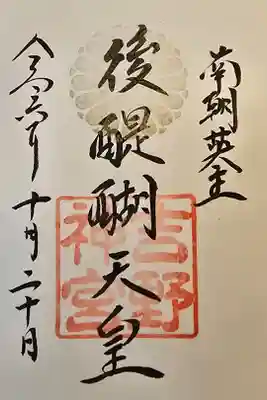 南朝英主
後醍醐天皇
吉野神宮
令和六年十月二十日